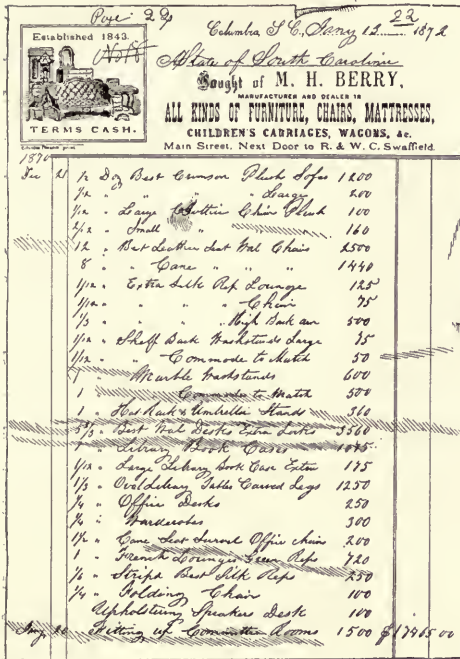 Page 229
22
Columbia S. C., Jany 12 1872
Established 1843.
No 18
State of South Carolina
Bought of M. H. BERRY,
MANUFACTURER AND DEALER IN
ALL KINDS OF FURNITURE, CHAIRS, MATTRESSES,
CHILDREN'S CARRIAGES, WAGONS, &c.
TERMS CASH.
Main Street, Next Door to R. & W. C. Swaffield.
1870
Dec 21 1/2 Doz Best Crimson Plush Sofas 1200
1/12 " " " " Large 200
1/12 " Large Chair Plush 100
2/12 " Small " " 160
12 " Best Leather Seat Wal Chairs 2500
8 " " Cane " " " 1440
1/12 " Extra Silk Rep Lounge 125
1/12 " " " " Chair 75
1/3 " " " " High Back arm 500
1/12 " Shelf Back Washstands Large 75
1/12 " " Commode to Match 50
1 " Marble Washstands 600
1 " Commodes to Match 500
1 " Hat Rack & Umbrella Stands 360
5 2/3 " Best Wal Desks Extra Locks 3560
1 " Library Book Cases 1075
1/12 " Large Library Book Case Extra 175
1/3 " Oval Library Tables Carved Legs 1250
1/4 " Office Desks 250
1/4 " Wardrobes 300
1 1/2 " Cane Seat Office chairs 200
1 " French Lounges Green Reps 720
1/6 " Best Silk Reps 250
1/4 " Folding Chair 100
Upholstering Speakers Desk 100
Jany 20 Fitting up Committee Rooms 1500 $17465 00